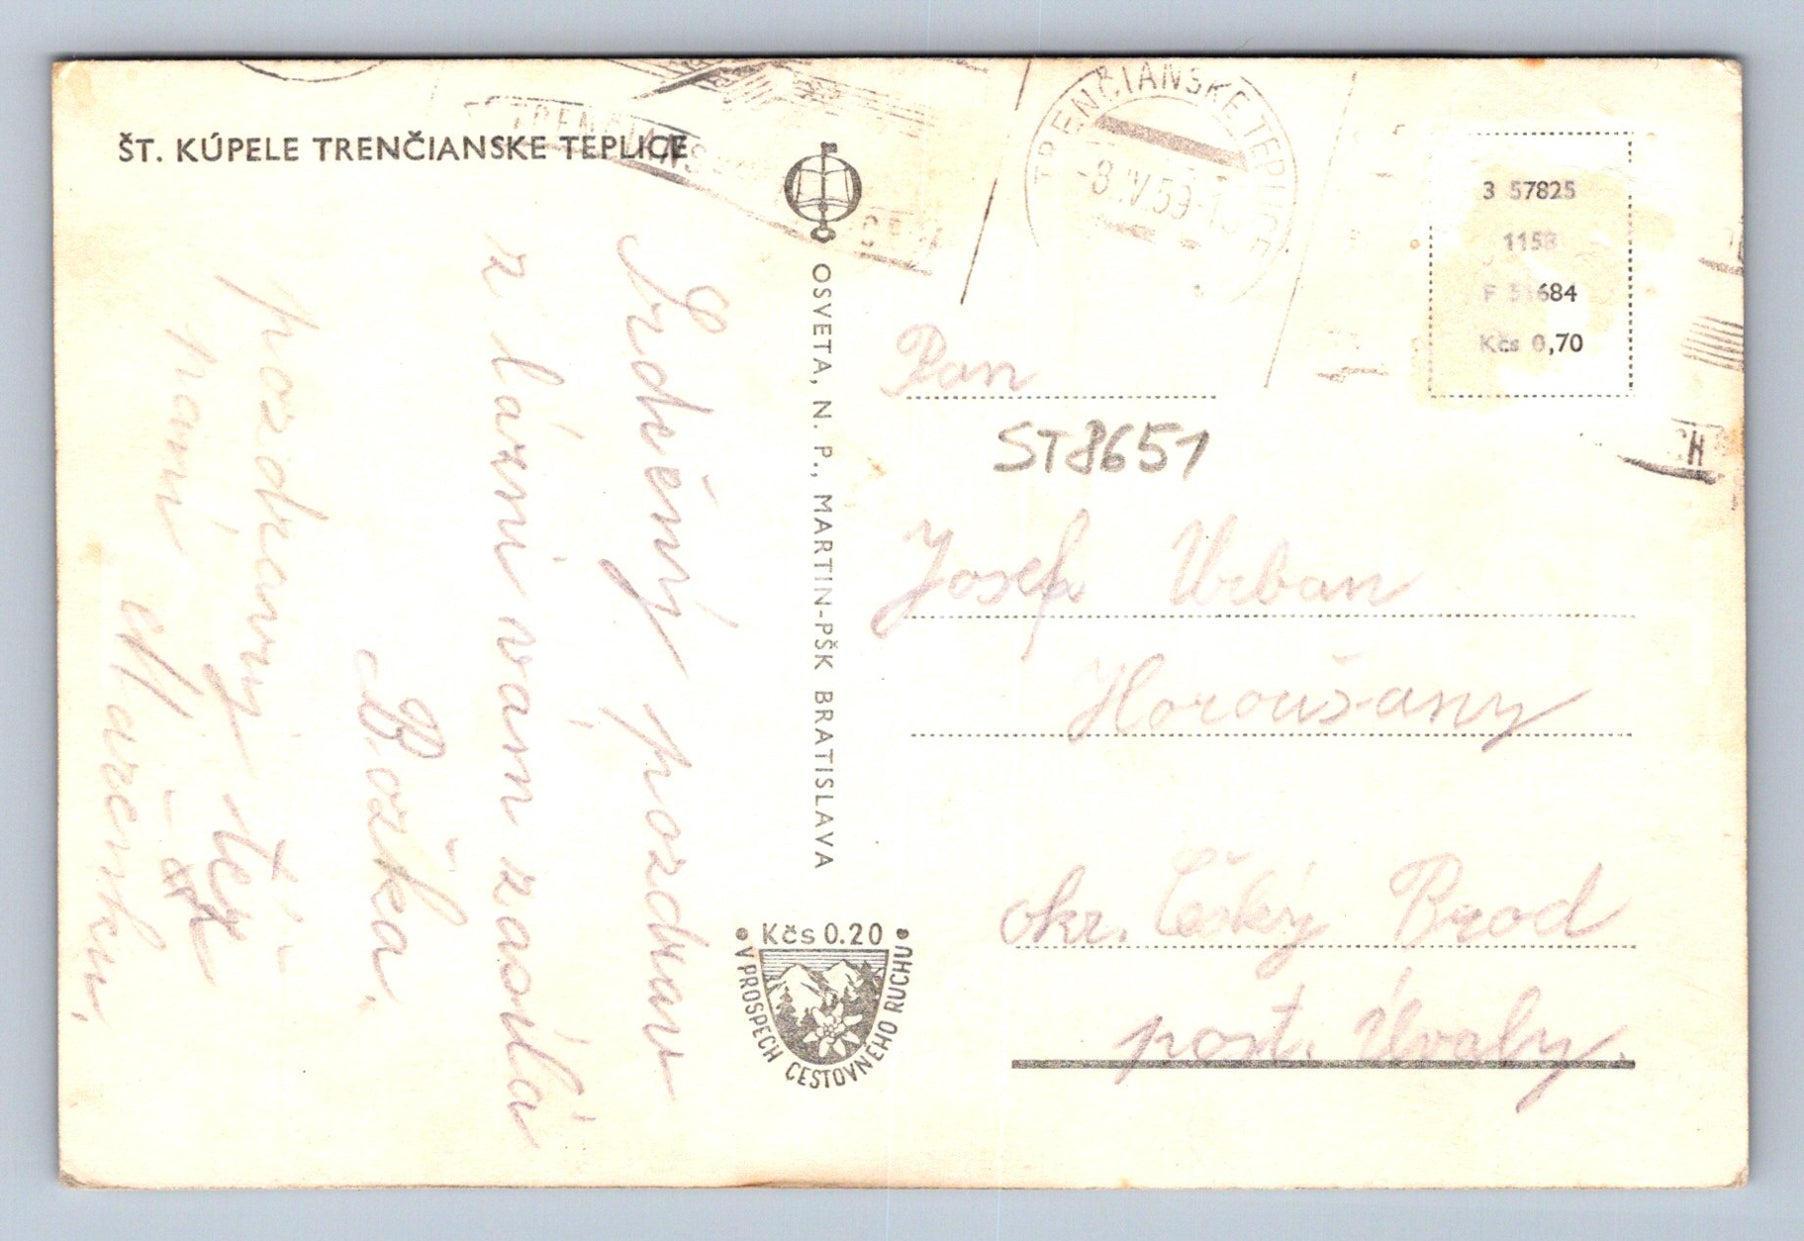 ŠT. KÚPELE TRENČIANSKE TEPLICE
TRENČIANSKE TEPLICE
-8.IV.59-1
3 57825
1158
F 51684
Kčs 0,70
OSVETA, N. P., MARTIN-PŠK BRATISLAVA
Kčs 0.20
V PROSPECH CESTOVNÉHO RUCHU
Srdečný pozdrav
z lázni vám zasílá
Božka.
pozdravuj též
mami
Mařenku.
Pan
ST8651
Josef Urban
Horoušany
okr. Český Brod
pošt. Úvaly.